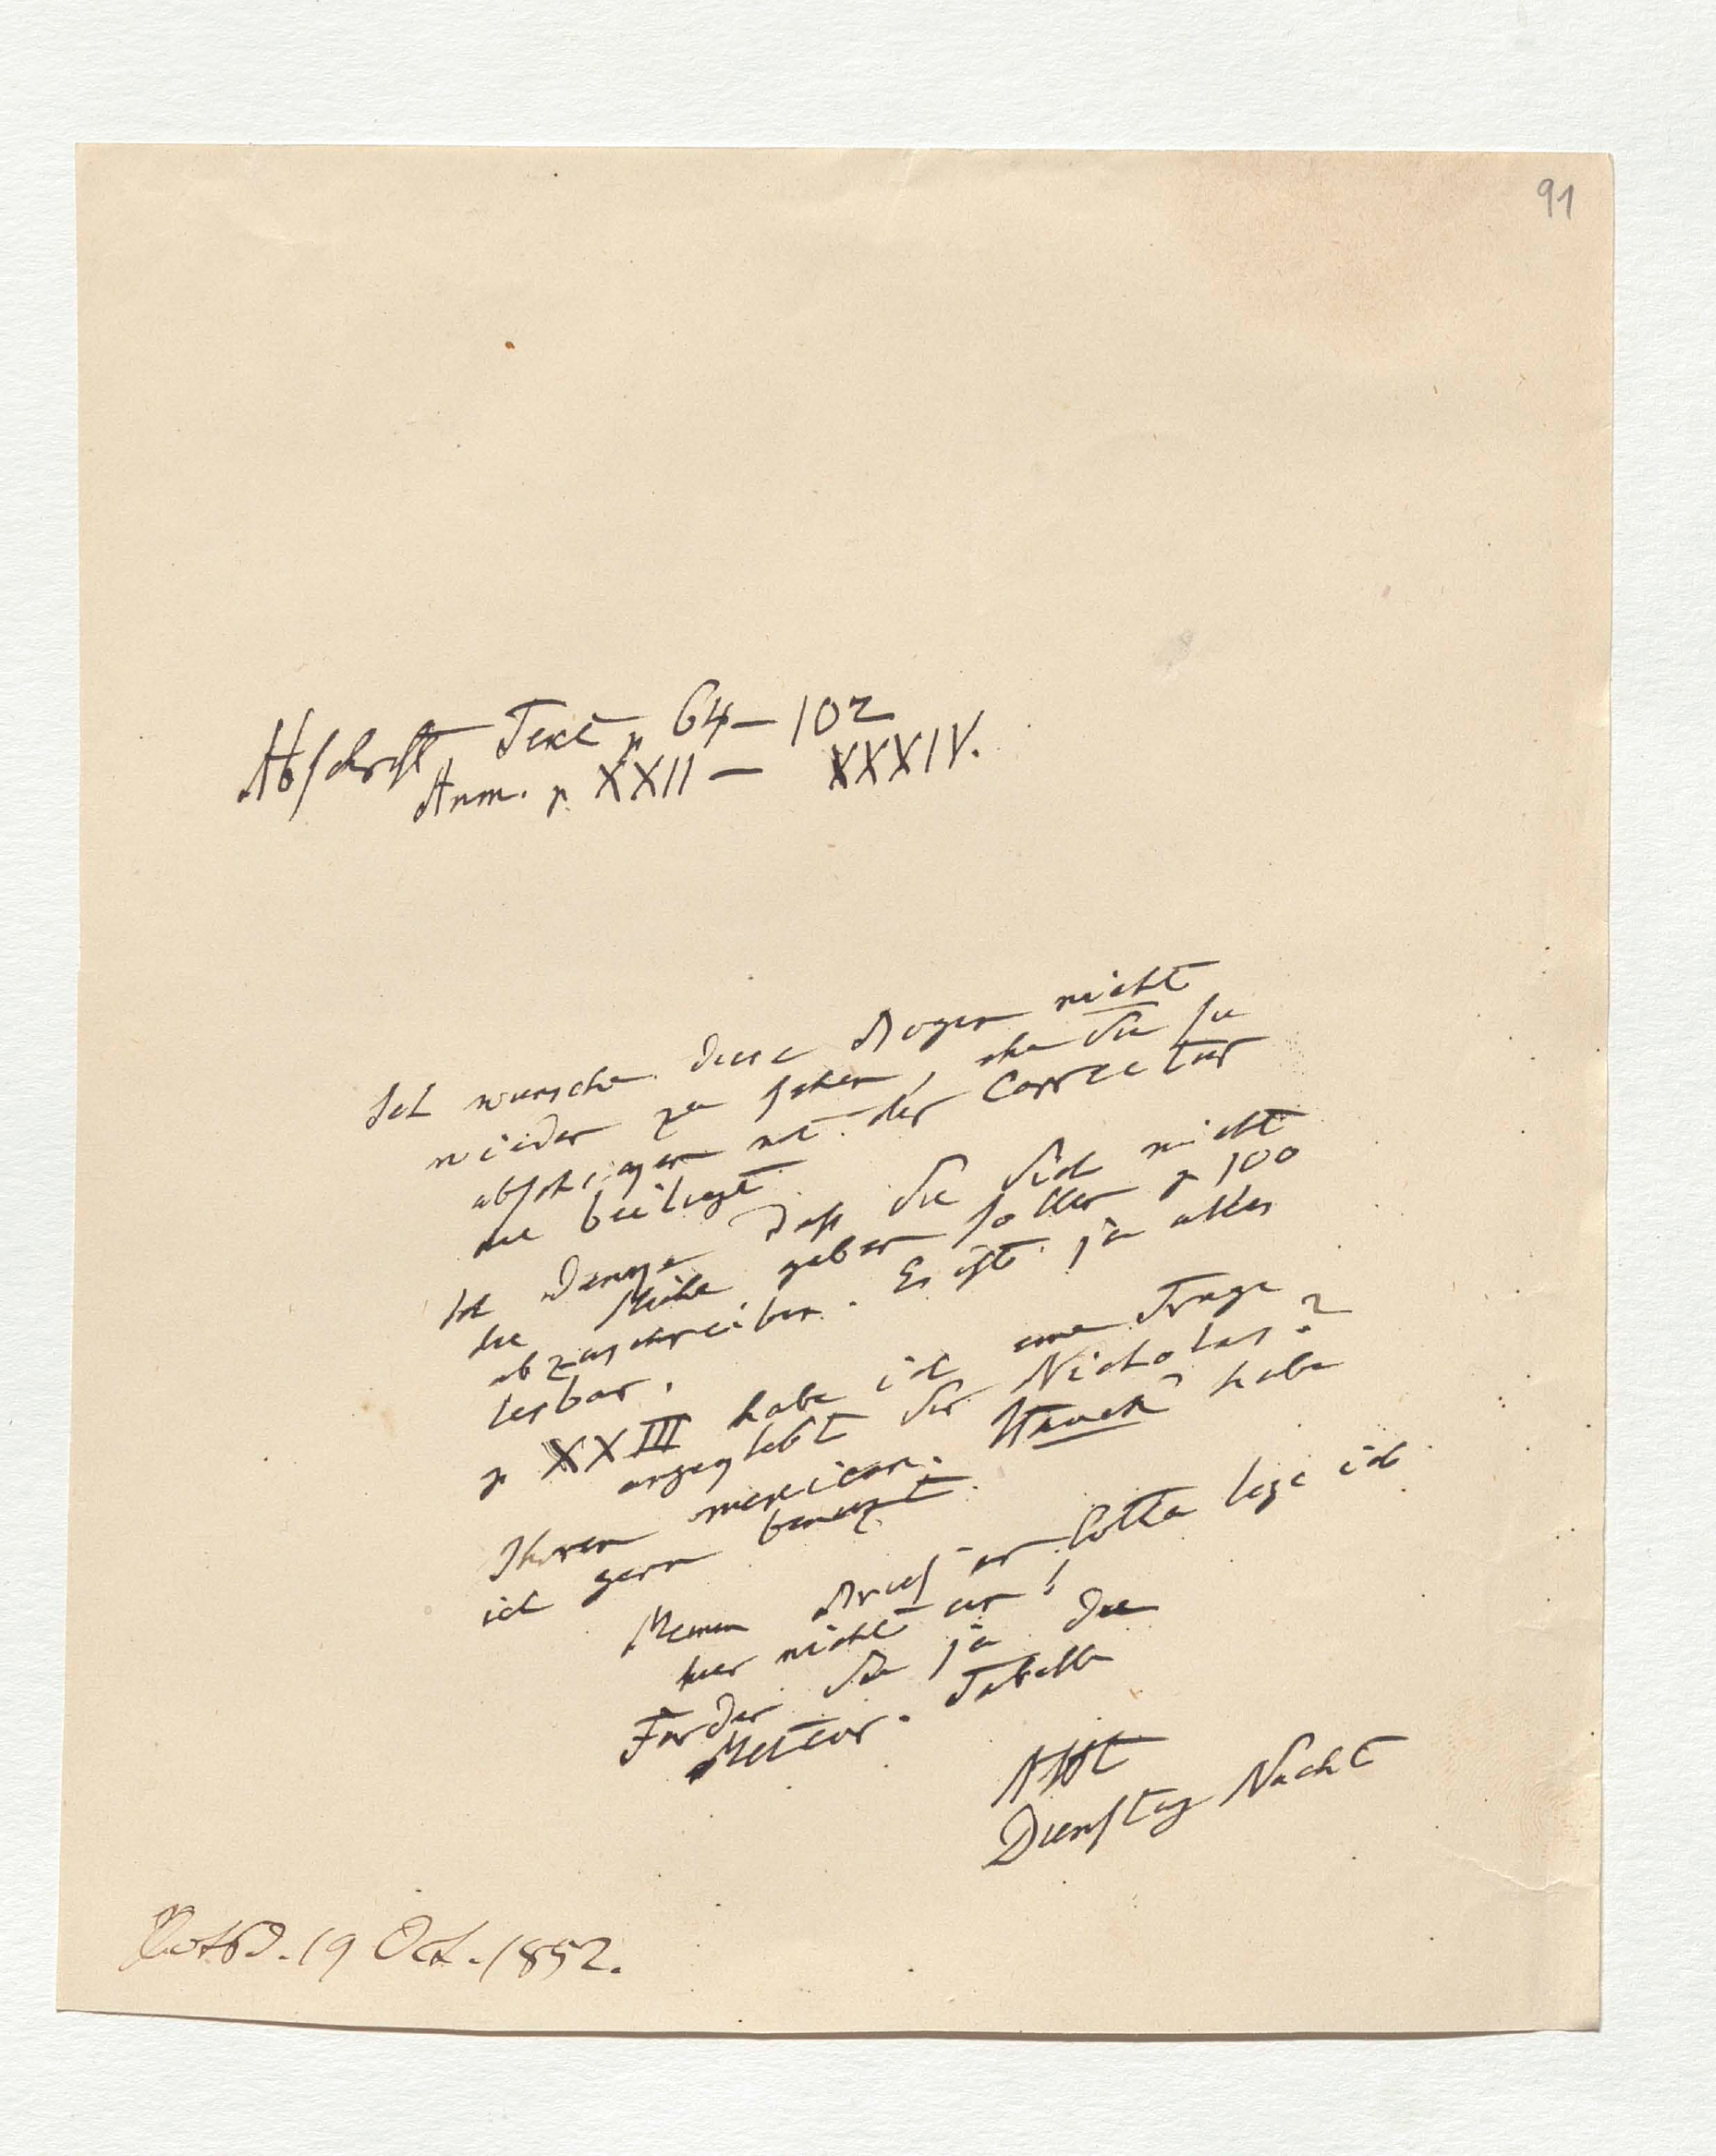 91
Abschrift Text p 64–102
Anm. p. XXII – XXXIV.
Ich wünsche diese Bogen nicht
wieder zu sehen, ehe Sie sie
abschikgen mit der Correctur
die beiliegt.
Ich denge daß Sie Sich nicht
die Mühe geben sollten p 100
abzuschreiben. Es ist ja alles
lesbar.
p XXIII habe ich eine Frage
angeklebt der Nicholas?
Ihren mexican. habe
ich gern benuzt.
Meinen Brief an Cotta lege ich
hier nicht an!
Fordern Sie ja die
Meteor. Tabelle
AHt
Dienstag Nacht
Potsd. 19 Oct. 1852.